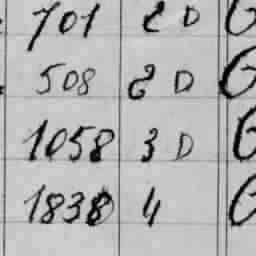 701 2 D
508 2 D
1058 3 D
1838 4